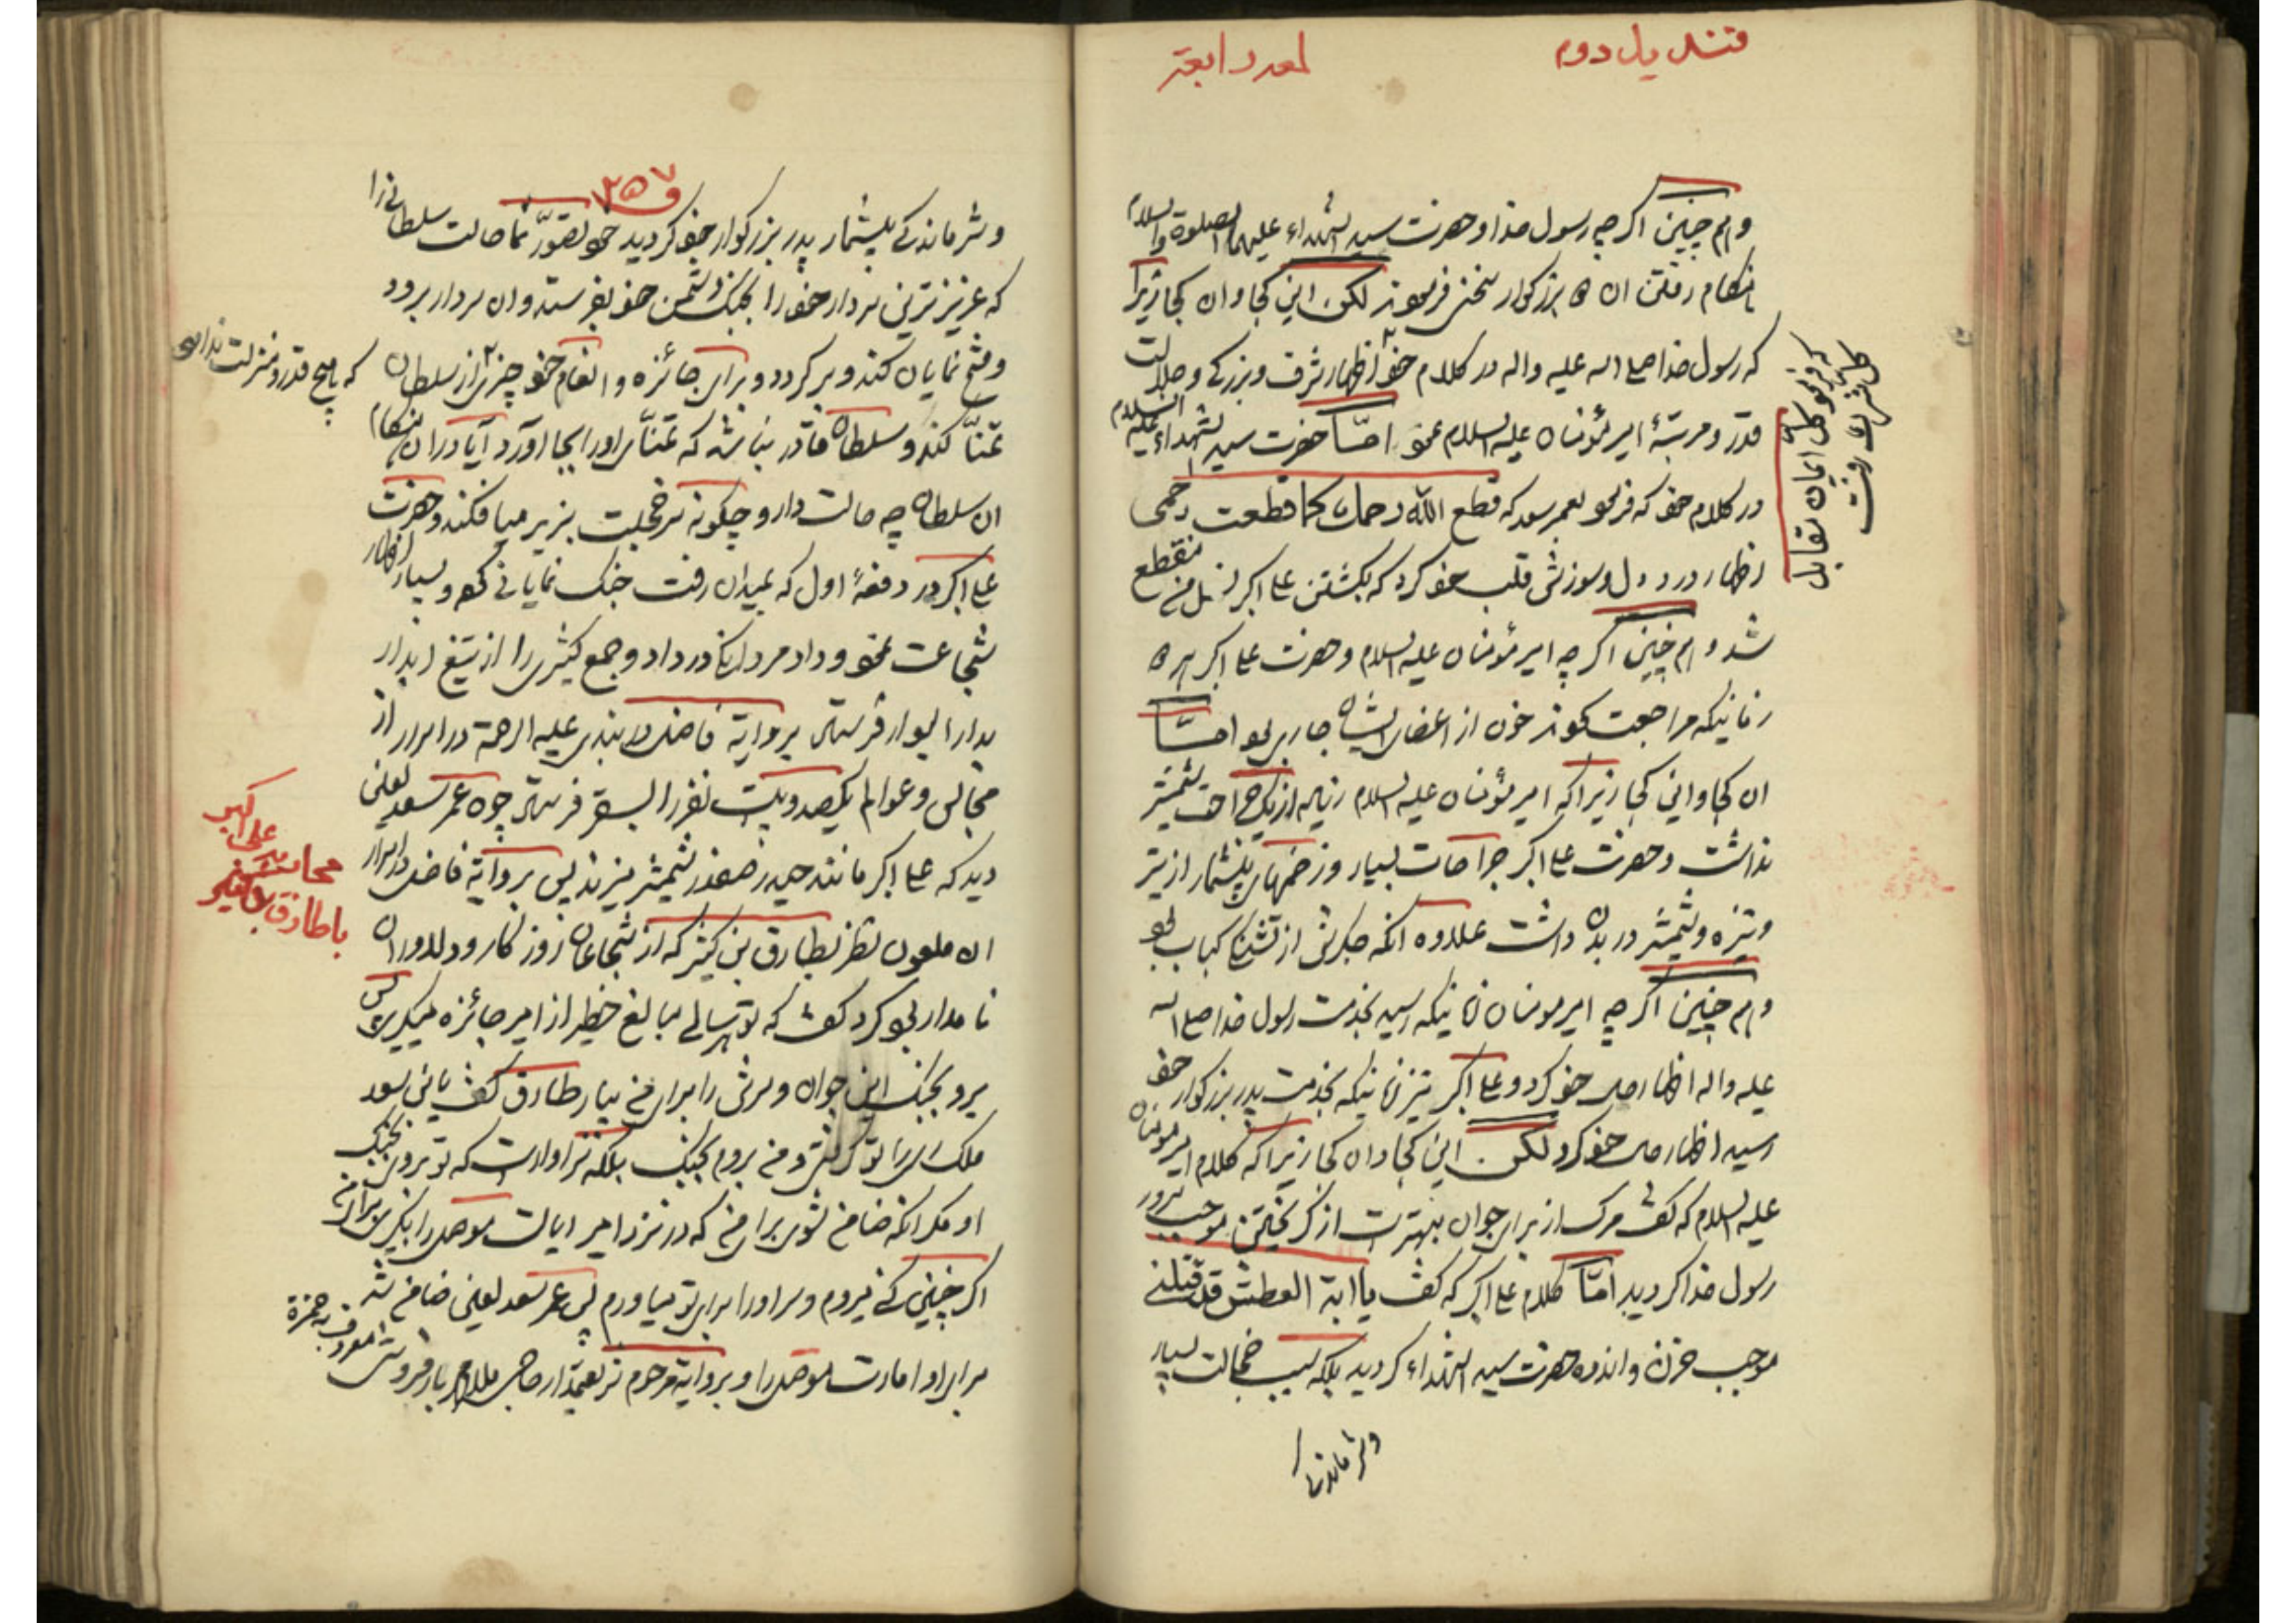 قندیل دوم
لمعه رابعه
و همچنین اگرچه رسول خدا و حضرت سید الشهداء علیهما الصلوة والسلام
هنگام رفتن ان بزرگوار سخنی فرمودند لکن این کجا و ان کجا زیرا
که رسول خدا صلی الله علیه واله در کلام خود اظهار شرف و بزرگی و جلالت
قدر و مرتبهٔ امیر مؤمنان علیه السلام نمود امّا حضرت سید الشهداء علیه السلام
که فرمود کل ایمان بمقابل
کل شرک رفت
در کلام خود که فرمود بعمر سعد که قطع الله رحمک کما قطعت رحمی
اظهار درد دل و سوزش قلب خود کرد که بکشتن علی اکبر نسل من منقطع
شد و همچنین اگرچه امیر مؤمنان علیه السلام و حضرت علی اکبر هر دو
زمانیکه مراجعت نمودند خون از اعضای ایشان جاری بود امّا
ان کجا و این کجا زیرا که امیر مؤمنان علیه السلام زیاده از یک جراحت شمشیر
نداشت و حضرت علی اکبر جراحات بسیار و زخمهای بیشمار از تیر
و نیزه و شمشیر در بدن داشت علاوه انکه جگرش از تشنگی کباب بود
و همچنین اگرچه امیر مومنان زمانیکه رسید بخدمت رسول خدا صلی الله
علیه واله اظهار حال خود کرد و علی اکبر نیز زمانیکه بخدمت پدر بزرگوار خود
رسید اظهار حال خود کرد لکن این کجا و ان کجا زیرا که کلام امیر مومنان
علیه السلام که گفت مرگ از برای جوان بهتر است از گریختن موجب سرور
رسول خدا گردید امّا کلام علی اکبر که گفت یا ابة العطش قد قتلنی
موجب حزن و اندوه حضرت سید الشهداء گردید بلکه سبب خجالت بسیار
و شرمندگی
۲۵۷
و شرماندگی بیشمار پدر بزرگوار خود گردید خود تصوّر نما حالت سلطانی را
که عزیزترین سردار خود را بجنگ دشمن خود بفرستد و ان سردار برود
و فتح نمایان کند و برگردد و برای جائزه و انعام خود چیزی از سلطان
که هیچ قدر و منزلت نداشته
تمنّا کند و سلطان قادر نباشد که تمنّای او را بجا اورد آیا در ان هنگام
ان سلطان چه حالت دارد و چگونه سر خجلت بزیر میافکند و حضرت
علی اکبر در دفعهٔ اول که بمیدان رفت جنگ نمایانی نمود و بسیار اظهار
شجاعت نمود و داد مردانگی در داد و جمع کثیری را از تیغ ابدار
بدار البوار فرستاد بروایة فاضل دربندی علیه الرحمة در اسرار از
مجالس و عوالم یکصد و بیست نفر را بسقر فرستاد چون عمر سعد لعین
دید که علی اکبر مانند حیدر صفدر شمشیر میزند پس بروایة فاضل در اسرار
محاربه علی اکبر
با طارق بن کثیر
ان ملعون نظر بطارق بن کثیر که از شجاعان روزگار و دلاوران
نامدار بود کرد گفت که تو هر سالی مبالغ خطیر از امیر جائزه میگیری پس
برو بجنگ این جوان و سرش را برای من بیار طارق گفت یابن سعد
ملک ری را تو گرفتی و من بروم بجنگ بلکه سزاوار است که تو بروی بجنگ
او مگر انکه ضامن شوی برای من که در نزد امیر ایالت موصل را بگیری برای من
اگر چنین کنی میروم و سر او را برای تو میاورم پس عمر سعد لعین ضامن شد
برای او امارت موصل را و بروایة مرحوم شریعتمدار حاجی ملا بارفروشی معروف به حمزة